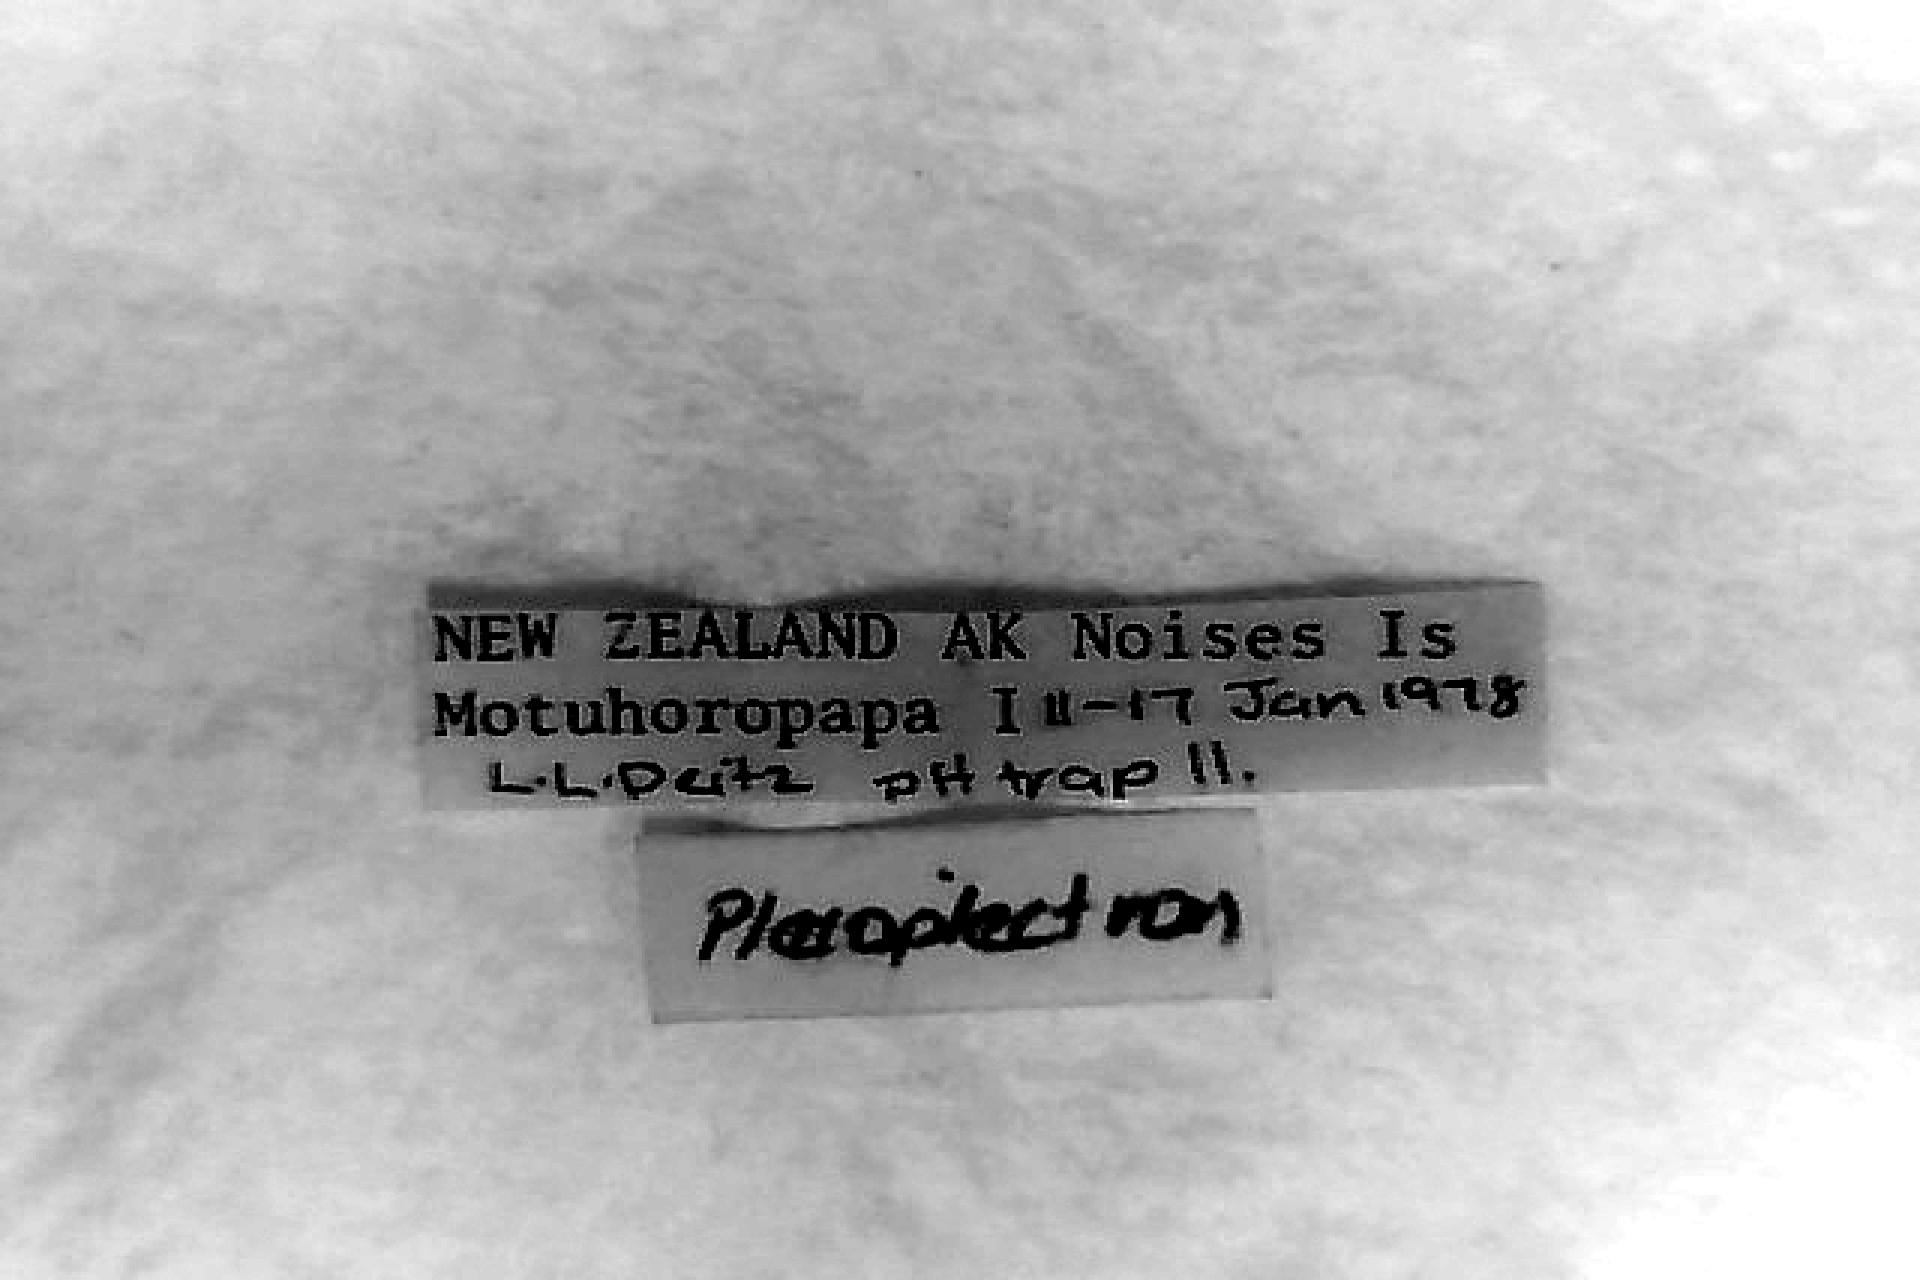 NEW ZEALAND AK Noises Is
Motuhoropapa I 11-17 Jan 1978
L.L.Deitz pH trap 11.
Pleioplectron